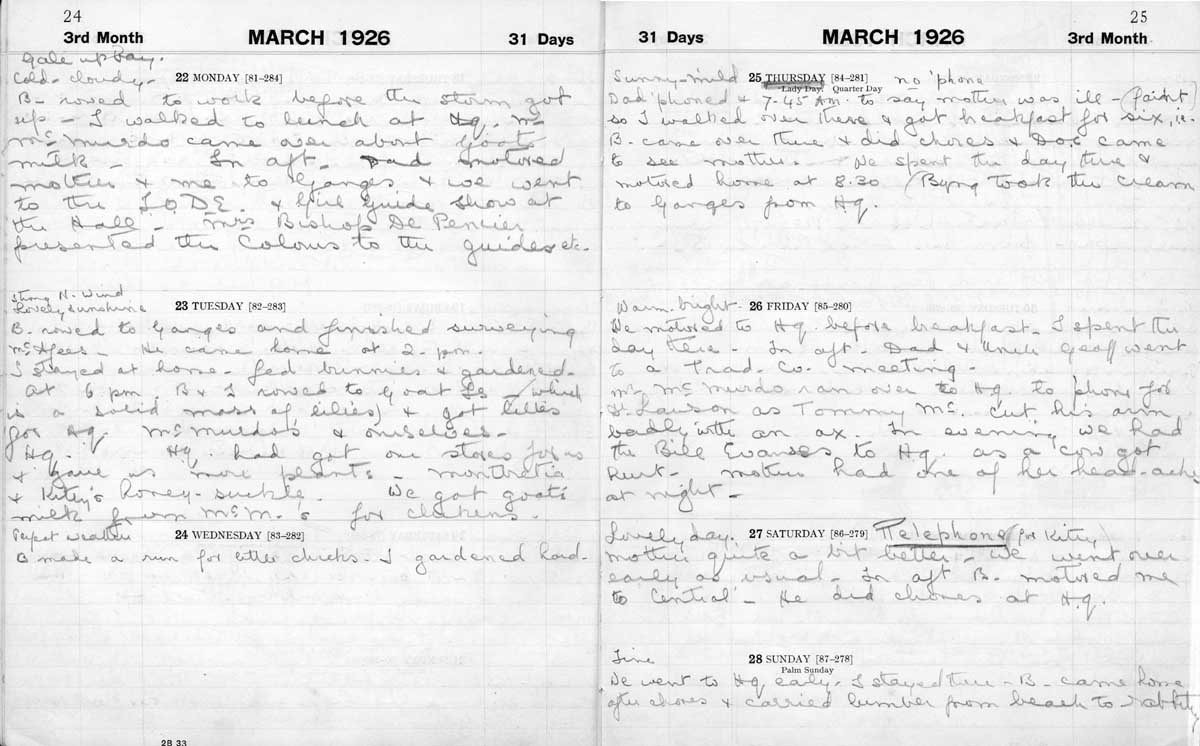 24
3rd Month MARCH 1926 31 Days
Gale up Bay.
Cold - cloudy - 22 MONDAY [81-284]
B- rowed to work before the storm got
up - I walked to lunch at Hq. Mr
McMurdo came over about goats
milk - In aft. Dad motored
mother & me to Ganges & we went
to the I.O.D.E. & Girl Guide Show at
the Hall - Mrs Bishop De Pencier
presented the Colours to the guides etc.
Strong N. Wind
Lovely sunshine 23 TUESDAY [82-283]
B. rowed to Ganges and finished surveying
McAfees - He came home at 2. pm.
I stayed at home - fed bunnies & gardened -
At 6 pm B & I rowed to Goat Is - (which
is a solid mass of lilies) & got lilies
for Hq. McMurdo's & ourselves -
Hq. Hq had got our stores for us
& gave us more plants - montbretia
& Kitty's honey-suckle. We got goat's
milk from McM.'s for chickens.
Perfect weather 24 WEDNESDAY [83-282]
B made a run for little chicks - I gardened hard -
2B 33
25
31 Days MARCH 1926 3rd Month
Sunny - mild 25 THURSDAY [84-281] no 'phone
Lady Day. Quarter Day
Dad 'phoned & 7-45 AM. to say mother was ill - (faint)
so I walked over there & got breakfast for six,
B. came over there & did chores & Doc came
to see mother. - We spent the day there &
motored home at 8.30 (Byng took the cream
to Ganges from Hq.
Warm. bright - 26 FRIDAY [85-280]
We motored to Hq. before breakfast - I spent the
day there - In aft - Dad & Uncle Geoff went
to a Trad. Co. meeting -
Mr McMurdo ran over to Hq. to 'phone for
Dr Lawson as Tommy Mc. cut his arm
badly with an ax. In evening we had
the Bill Evanses to Hq. as a cow got
hurt - mother had one of her head-aches
at night -
Lovely day. 27 SATURDAY [86-279] Telephone (for Kitty)
mother quite a bit better - we went over
early as usual - In aft B. motored me
to 'Central' - He did chores at Hq.
Fine 28 SUNDAY [87-278]
Palm Sunday
We went to Hq early - I stayed there - B - came home
after chores & carried lumber from beach to